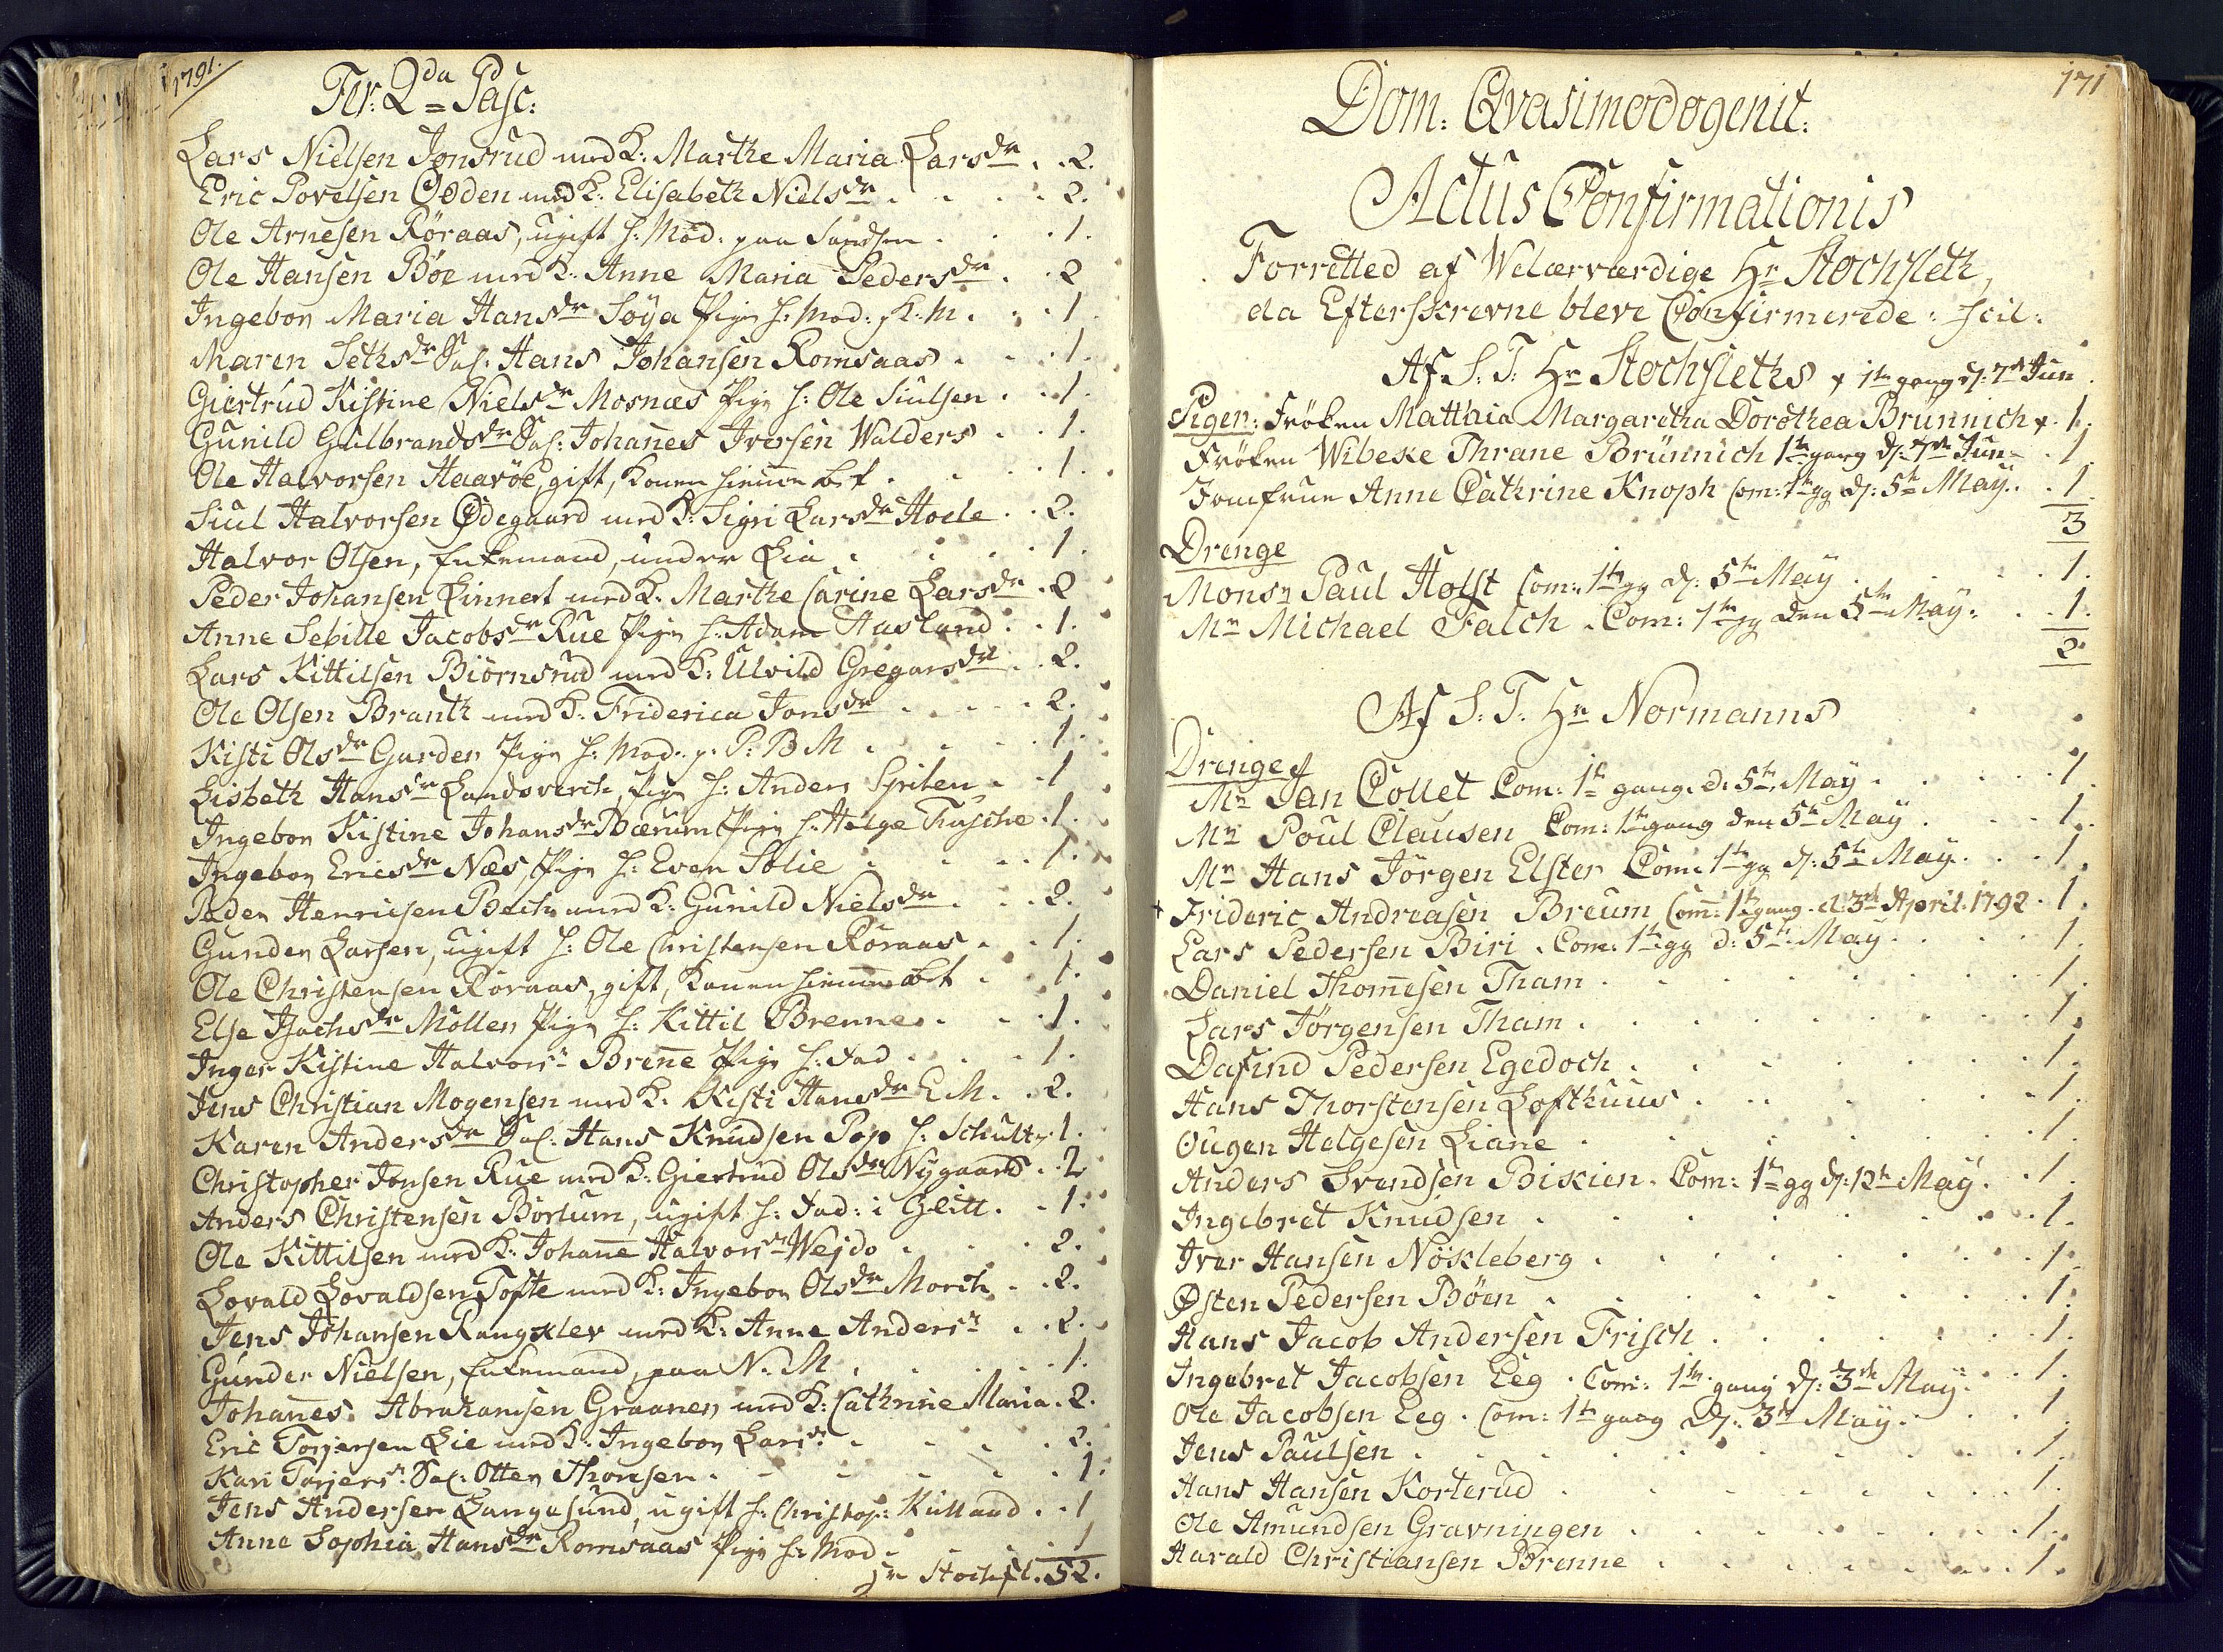 1791.
Fer: 2da Pasc:
Lars Nielsen Jonsrud med K: Marthe Maria Larsdr . . 2.
Eric Povelsen Odden med K: Elisabeth Nielsdr . . . . 2.
Ole Arnesen Röraas, ugift h: Mod: paa Sandsen . . . 1.
Ole Hansen Böe med K: Anne Maria Pedersdr . . 2
Ingebor Maria Hansdr Söya Pige h: Mod: p: K: M. . . 1.
Maren Sethsdr Sal: Hans Johansen Romsaas . . . 1.
Giertrud Kistine Nielsdr Mosnæs Pige h: Ole Siulsen . . 1.
Gunild Gulbrandsdr Sal: Johañes Iversen Walders . . 1.
Ole Halvorsen Haavöe, gift, Konen hiemme bet . . . 1.
Siul Halvorsen Ødegaard med K: Sigri Larsdr Hoele . . 2.
Halvor Olsen, Enkemand, under Lia . . . . 1.
Peder Johansen Linnert med K: Marthe Carine Larsdr . 2
Anne Sebille Jacobsdr Rue Pige h: Adam Aasland . . 1.
Lars Kittilsen Biörnsrud med K: Ulvild Gregarsdr . . 2.
Ole Olsen Branth med K: Friderica Jonsdr . . . . 2.
Kisti Olsdr Garder Pige h: Mod: p: P: B M . . . . 1.
Lisbeth Hansdr Landsverch, Pige h: Anders Spiten . . 1
Ingebor Kistine Johansdr Bærum Pige h: Helge Fusche . 1.
Ingebor Ericsdr Næs, Pige h: Even Solie . . . . 1.
Peder Henricsen Bache med K: Gunild Nielsdr . . . 2.
Gunder Larsen, ugift h: Ole Christensen Röraas . . 1.
Ole Christensen Röraas, gift, Konen hiemme bet . . 1.
Else Isachsdr Möller Pige h: Kittil Brenne . . . 1.
Inger Kistine Halvorsdr Breñe Pige h: Fad . . . 1.
Jens Christian Mogensen med K: Kisti Hansdr E M. . 2.
Karen Andersdr Sal: Hans Knudsen Pop h: Schultz 1.
Christopher Jonsen Rue med K: Giertrud Olsdr Nygaard . 2
Anders Christensen Börtum, ugift h: Fad: i Glitt. . 1.
Ole Kittilsen med K: Johañe Halvorsdr Wejdo . . . 2.
Lovald Lovaldsen Tofte med K: Ingebor Olsdr Morch . . 2.
Jens Johansen Rangklev med K: Anne Andersdr . . 2.
Gunder Nielsen, Enkemand, paa N: M. . . . . 1.
Johañes Abrahamsen Graanes med K: Cathrine Maria . 2.
Eric Torjersen Lie med K: Ingebor Larsdr . . . . 2.
Kari Torjersdr Sal: Otter Thorsen . . . . . . 1.
Jens Andersen Langesund, ugift h: Christop: Kulland . . 1
Anne Sophia Hansdr Romsaas Pige h: Mod . . . 1
Hr Stochfl. 52.
171
Dom: Qvasimodogenit:
Actus Confirmationis
Forretted af Welærværdige Hr Stochfleth,
da Efterskrevne bleve Confirmerede: scil:
Af S: T: Hr Stochfleths + 1te gang d: 7de Jun
Piger: Fröken Matthia Margaretha Dorothea Brünnich + . 1.
Fröken Wibeke Thrane Brünnich 1te gang d: 7de Jun . . 1.
Jomfrue Anne Cathrine Knoph Com: 1te gg d: 5te May . . 1
3
Drenge
Monsr Paul Holst Com: 1te gg d: 5te May . . . . 1.
Mr Michael Falch . Com: 1te gg den 5te May . . . 1.
2.
Af S: T: Hr Normanns
Drenge
Mr Jan Collet Com: 1te gang d: 5te May . . . . . 1
Mr Poul Clausen Com: 1te gang den 5te May . . . 1.
Mr Hans Jörgen Elster Com: 1te gg d: 5te May . . . 1.
+ Frideric Andreasen Breum Com: 1te gang d: 3de April 1792 . 1.
Lars Pedersen Biri . Com: 1te gg d: 5te May . . . . 1.
Daniel Thomesen Tham . . . . . . . . 1.
Lars Jörgensen Tham . . . . . . . . 1.
Dafind Pedersen Egedoch . . . . . . . 1.
Hans Thorstensen Lofthuus . . . . . . 1.
Ougen Helgesen Liane . . . . . . . 1.
Anders Svendsen Bikien . Com: 1te gg d: 12te May . . 1.
Ingebret Knudsen . . . . . . . . 1.
Iver Hansen Nökleberg . . . . . . . 1.
Østen Pedersen Böen . . . . . . . . 1.
Hans Jacob Andersen Frisch . . . . . . 1.
Ingebret Jacobsen Eeg . Com: 1te gang d: 3de May . . 1.
Ole Jacobsen Eeg . Com: 1te gang d: 3de May . . . 1.
Jens Paulsen . . . . . . . . . 1.
Hans Hansen Korterud . . . . . . . 1.
Ole Amundsen Gravningen . . . . . . . 1.
Harald Christiansen Brenne . . . . . . . 1.